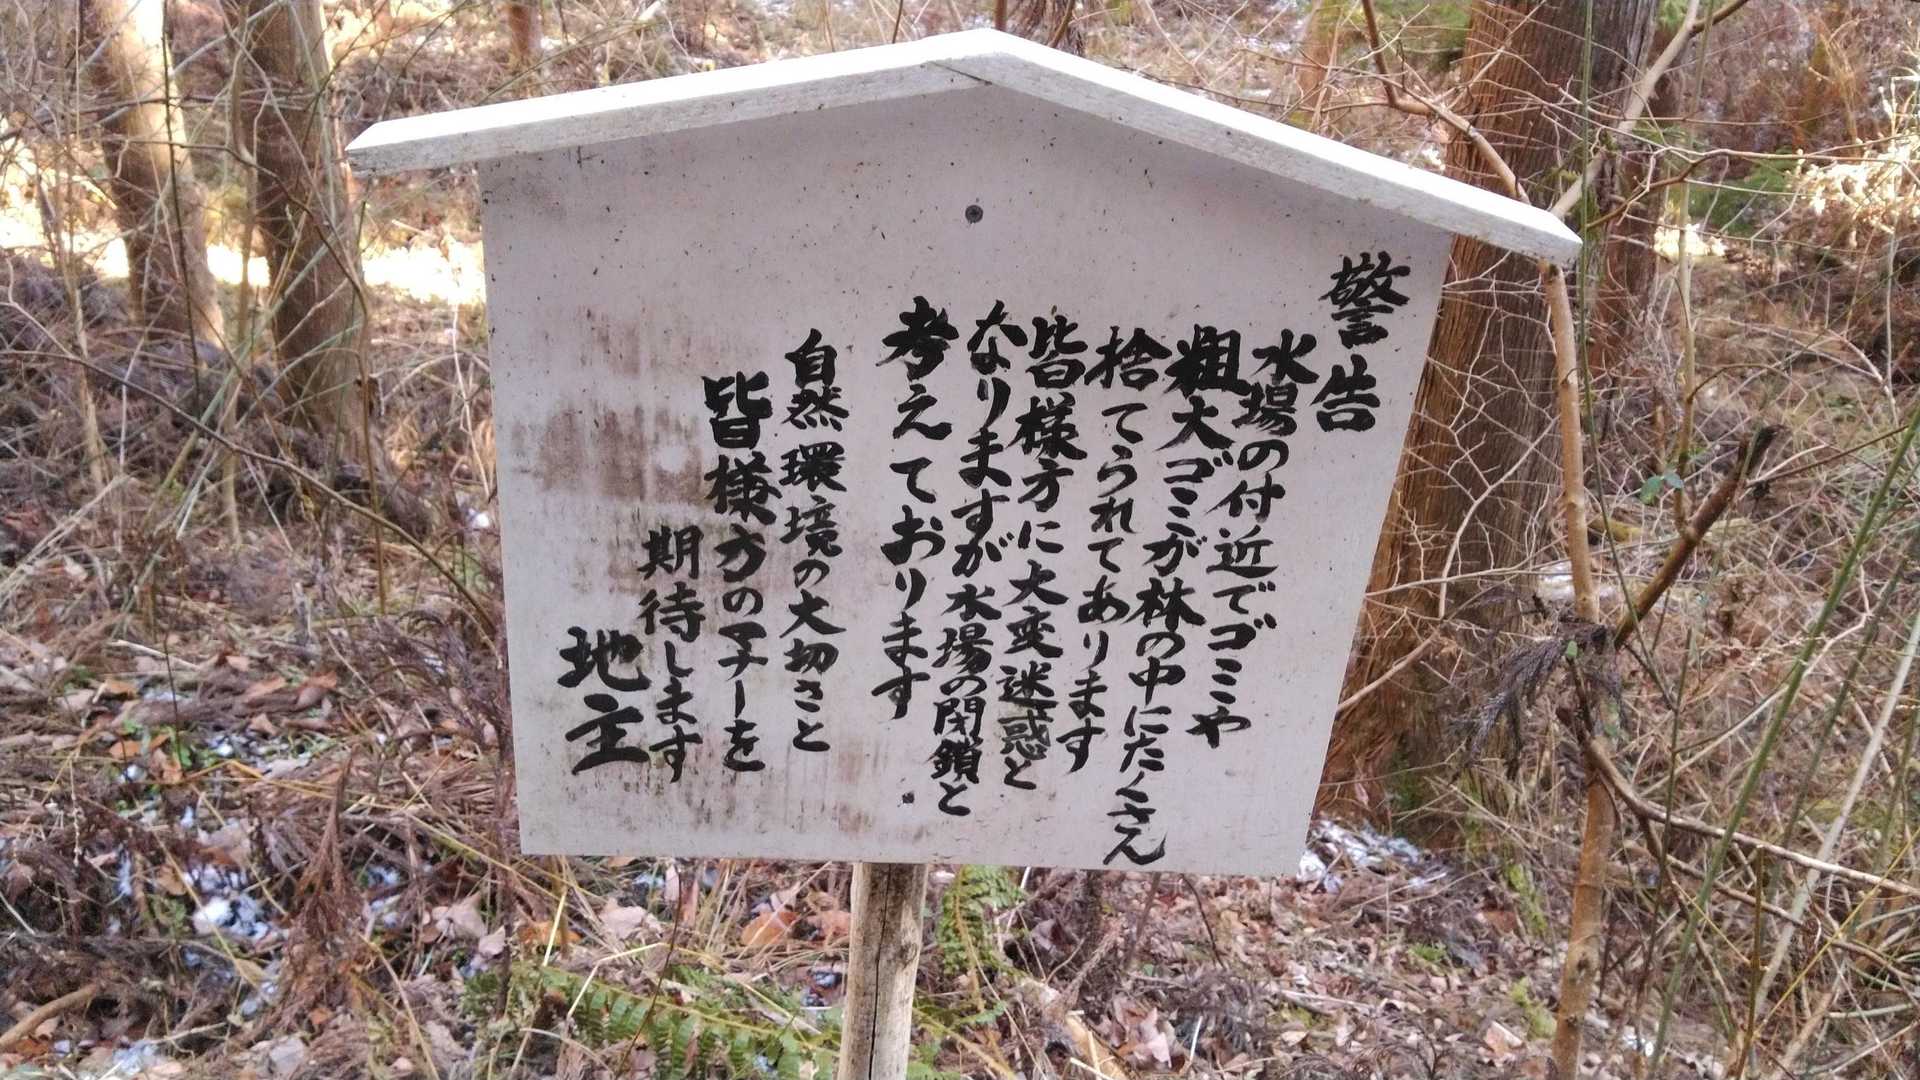 警告
水場の付近でゴミや
粗大ゴミが林の中にたくさん
捨てられてあります
皆様方に大変迷惑と
なりますが水場の閉鎖と
考えております
自然環境の大切さと
皆様方のマナーを
期待します
地主